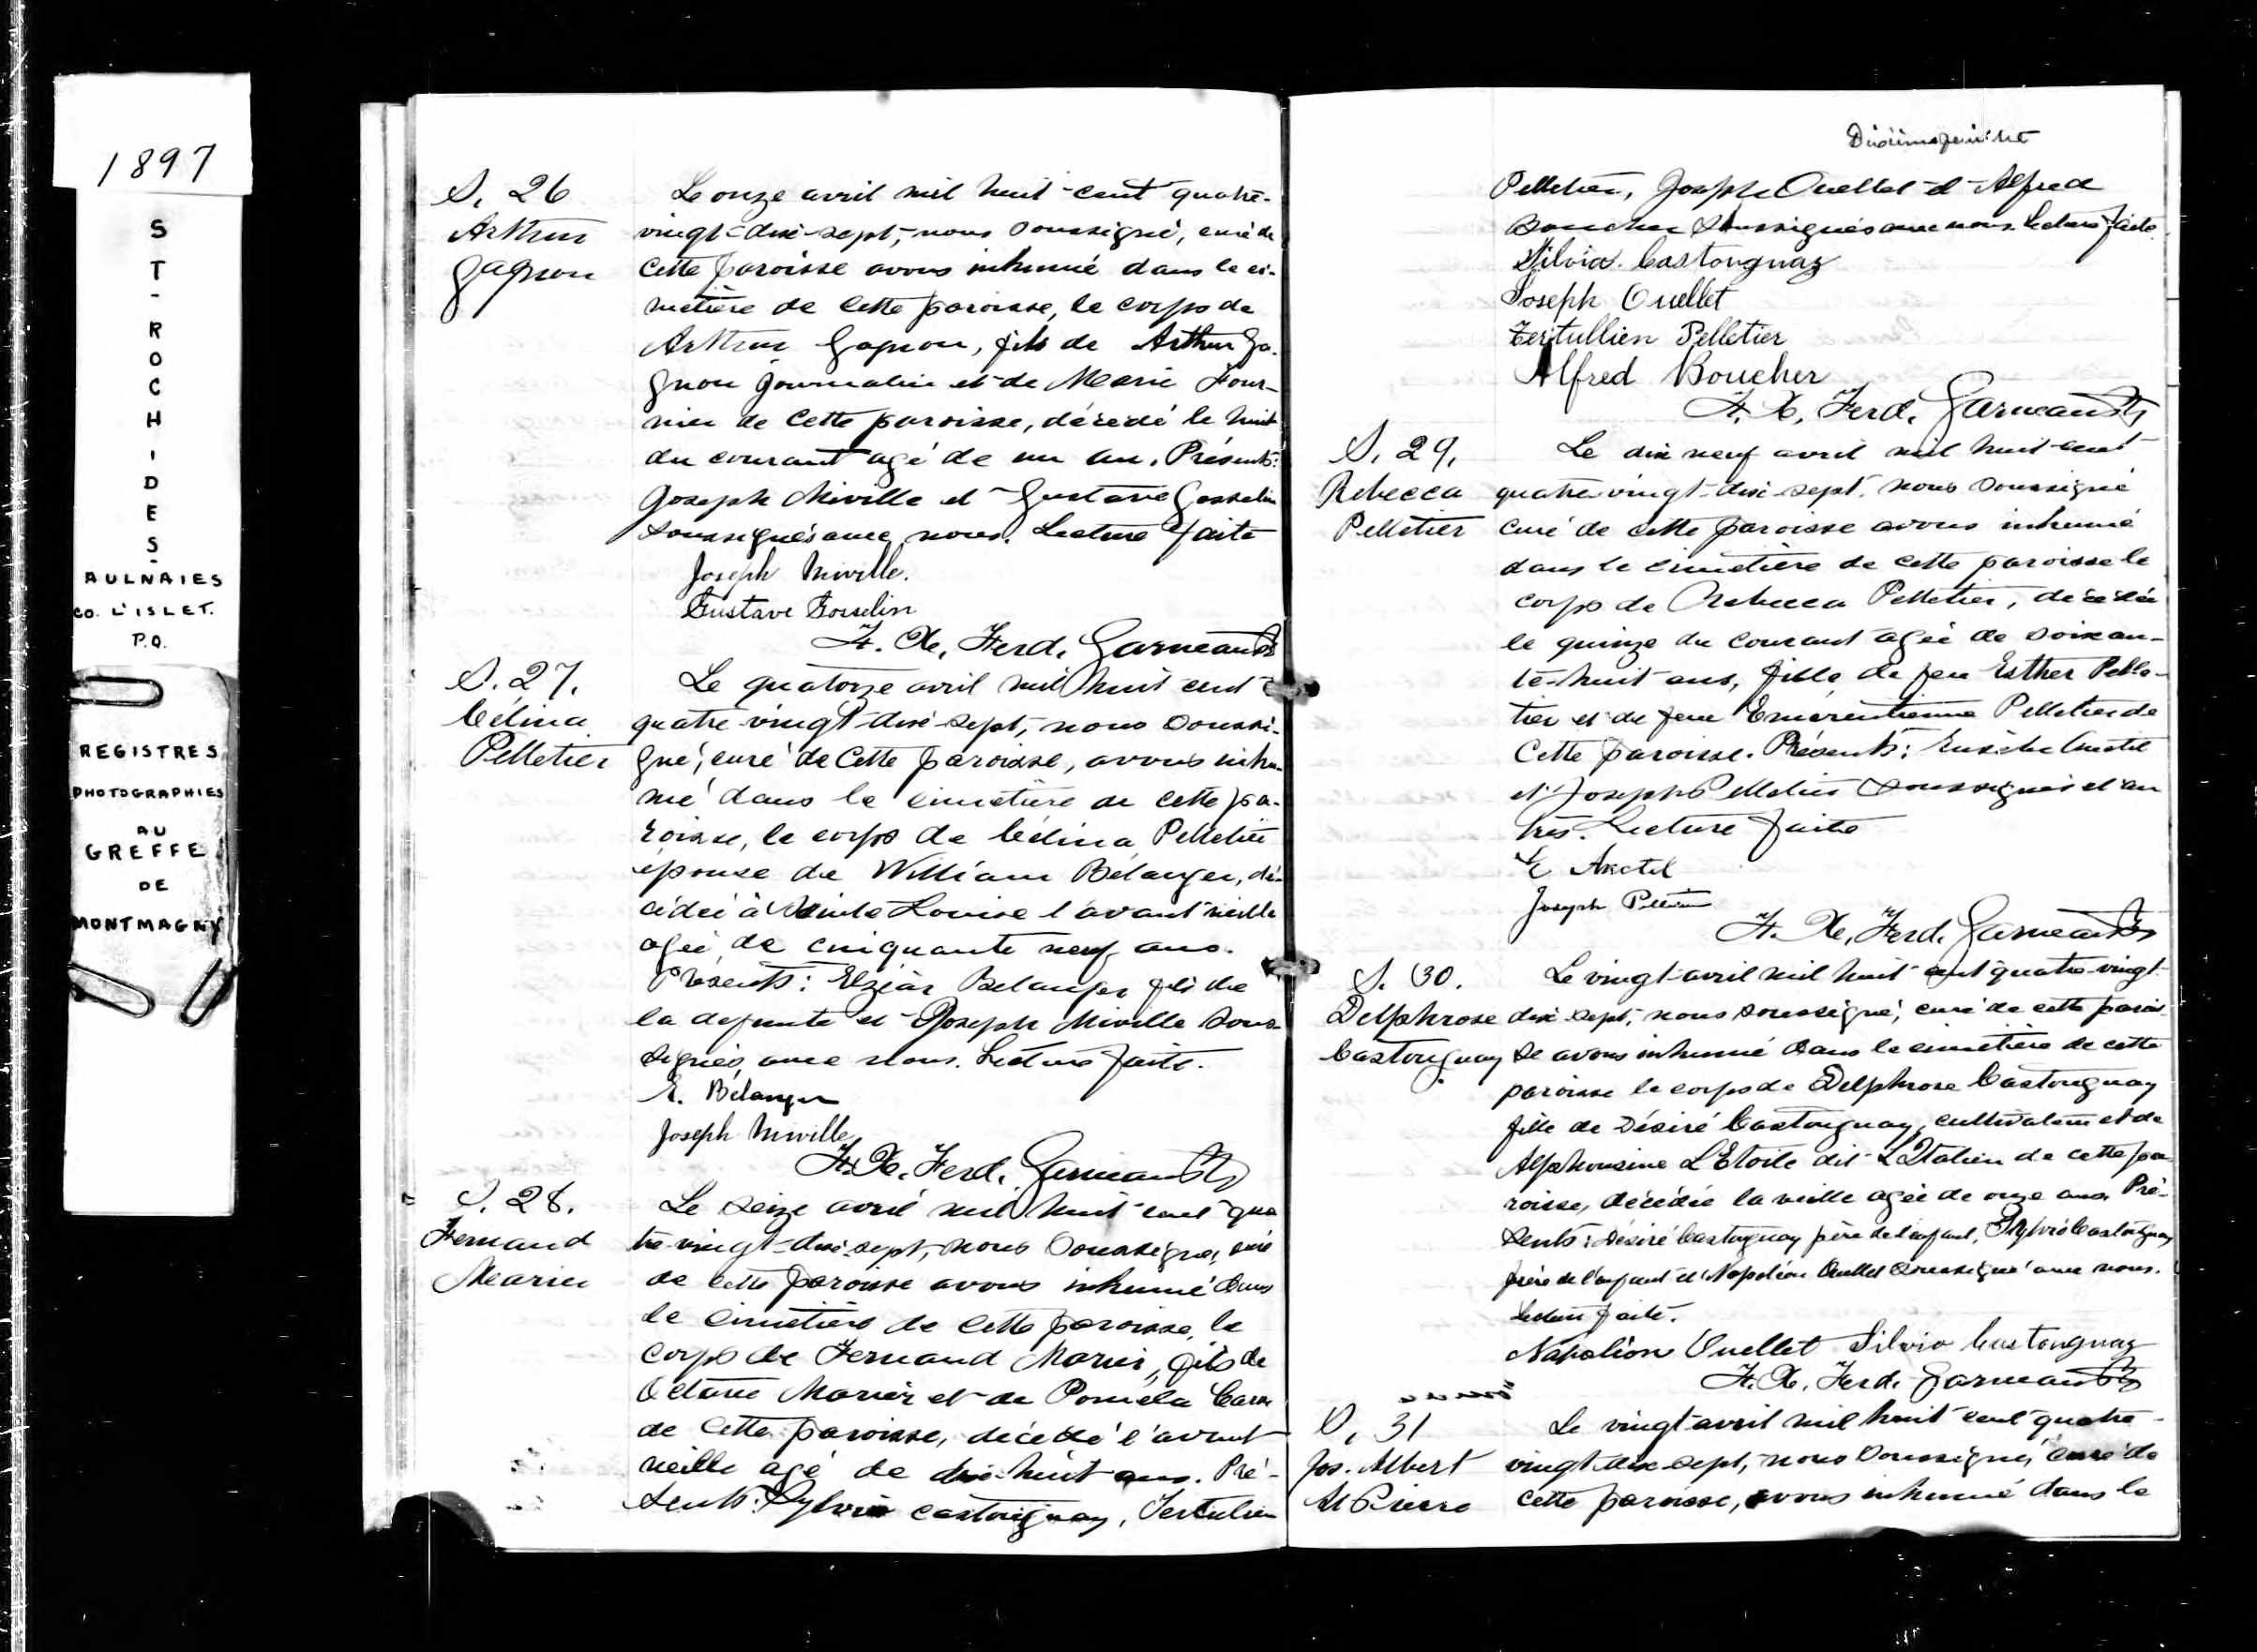 1897
ST-ROCH-DES-
AULNAIES
CO. L'ISLET.
P.Q.
REGISTRES
PHOTOGRAPHIES
AU
GREFFE
DE
MONTMAGNY
S. 26
Arthur
Gagnon
Le onze avril mil huit cent quatre-
vingt-dix-sept, nous soussigné, curé de
cette paroisse avons inhumé dans le ci-
metière de cette paroisse, le corps de
Arthur Gagnon, fils de Arthur Ga-
gnon journalier et de Marie Four-
nier de cette paroisse, décédé le huit
du courant agé de un an. Présents:
Joseph Miville et Gustave Gosselin
soussignés avec nous. Lecture faite
Joseph Miville.
Gustave Gosselin
F. X. Ferd. Garneau Ptr
S. 27.
Célina
Pelletier
Le quatorze avril mil huit cent
quatre-vingt-dix-sept, nous soussi-
gné, curé de cette paroisse, avons inhu-
mé dans le cimetière de cette pa-
roisse, le corps de Célina Pelletier
épouse de William Bélanger, dé-
cédée à Sainte Louise l'avant veille
agée de cinquante neuf ans.
Présents: Elzéar Belanger fils de
la defunte et Joseph Miville sous-
signés avec nous. Lecture faite.
E. Bélanger
Joseph Miville
F. X. Ferd. Garneau Ptr
S. 28.
Fernand
Marier
Le seize avril mil huit cent qua
tre-vingt-dix-sept, nous soussigné, curé
de cette paroisse avons inhumé dans
le cimetière de cette paroisse, le
corps de Fernand Marier, fils de
Octave Marier et de Poméla Caron
de cette paroisse, décédé l'avant
veille agé de dix-huit ans. Pré-
sents: Sylvio Castonguay, Tertulien
Dixième feuillet
Pelletier, Joseph Ouellet et Alfred
Boucher soussignés avec nous. Lecture faite.
Silvio Castonguay
Joseph Ouellet
Tertullien Pelletier
Alfred Boucher
F. X. Ferd. Garneau Ptr
S. 29.
Rebecca
Pelletier
Le dix neuf avril mil huit cent
quatre vingt-dix-sept, nous soussigné
curé de cette paroisse avons inhumé
dans le cimetière de cette paroisse le
corps de Rebecca Pelletier, décédée
le quinze du courant agée de soixan-
te-huit ans, fille de feu Esther Pelle-
tier et de feue Emerentienne Pelletier de
cette paroisse. Présents: Eusèbe Anctil
et Joseph Pelletier soussignés et au
tres. Lecture faite
E Anctil
Joseph Pelletier
F. X. Ferd. Garneau Ptr
S. 30.
Delphrose
Castonguay
Le vingt avril mil huit cent quatre-vingt-
dix-sept, nous soussigné, curé de cette parois-
se avons inhumé dans le cimetière de cette
paroisse le corps de Delphrose Castonguay
fille de Désiré Castonguay, cultivateur et de
Alphonsine L'Etoile dit L'Italien de cette pa
roisse, décédée la veille agée de onze ans. Pré-
sents: Désiré Castonguay père de l'enfant, Sylvio Castonguay
frère de l'enfant et Napoléon Ouellet soussigné avec nous.
Lecture faite.
Napoléon Ouellet Silvio Castonguay
F. X. Ferd. Garneau Ptr
S. 31
Jos. Albert
St Pierre
Le vingt avril mil huit cent quatre-
vingt-dix-sept, nous soussigné, curé de
cette paroisse, avons inhumé dans le